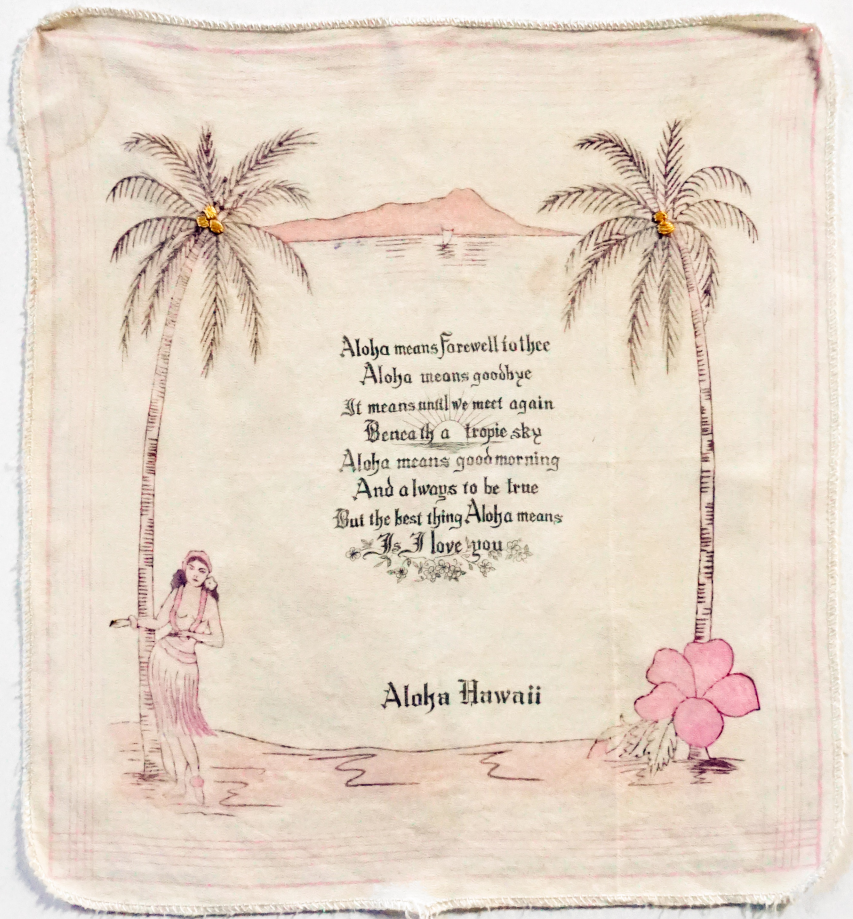 Aloha means farewell to thee
Aloha means goodbye
It means until we meet again
Beneath a tropic sky
Aloha means good morning
And always to be true
But the best thing Aloha means
Is I love you
Aloha Hawaii